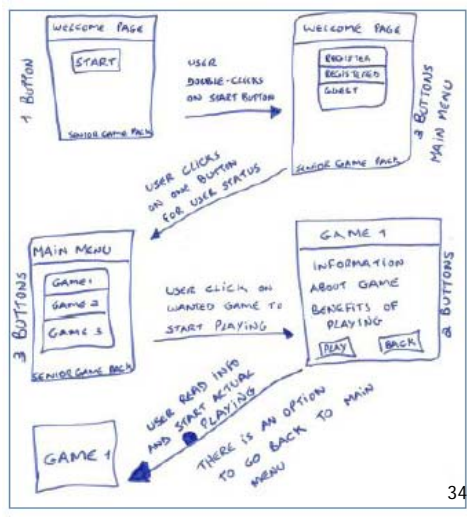 WELCOME PAGE
START
SENIOR GAME PACK
1 BUTTON
USER
DOUBLE-CLICKS
ON START BUTTON
WELCOME PAGE
REGISTER
REGISTERED
GUEST
SENIOR GAME PACK
2 BUTTONS
MAIN MENU
USER CLICKS
ON ONE BUTTON
FOR USER STATUS
MAIN MENU
GAME 1
GAME 2
GAME 3
SENIOR GAME PACK
3 BUTTONS
USER CLICK ON
WANTED GAME TO
START PLAYING
GAME 1
INFORMATION
ABOUT GAME
BENEFITS OF
PLAYING
PLAY
BACK
2 BUTTONS
USER READ INFO
AND START ACTUAL
PLAYING
THERE IS AN OPTION
TO GO BACK TO MAIN
MENU
GAME 1
34